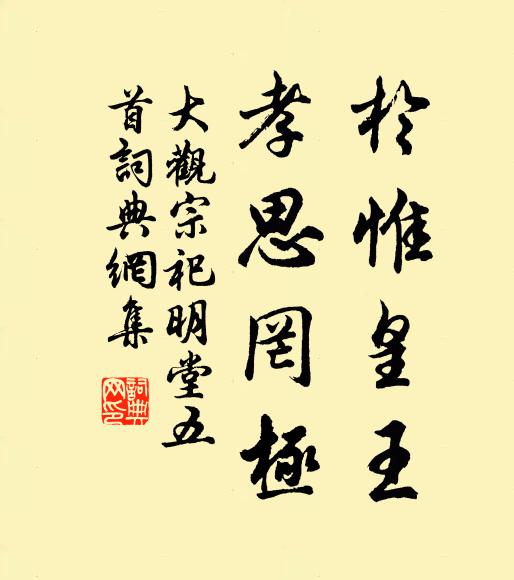 於惟皇王
孝思罔極
大觀宗祀明堂五
首詞典網集
詞典
网印